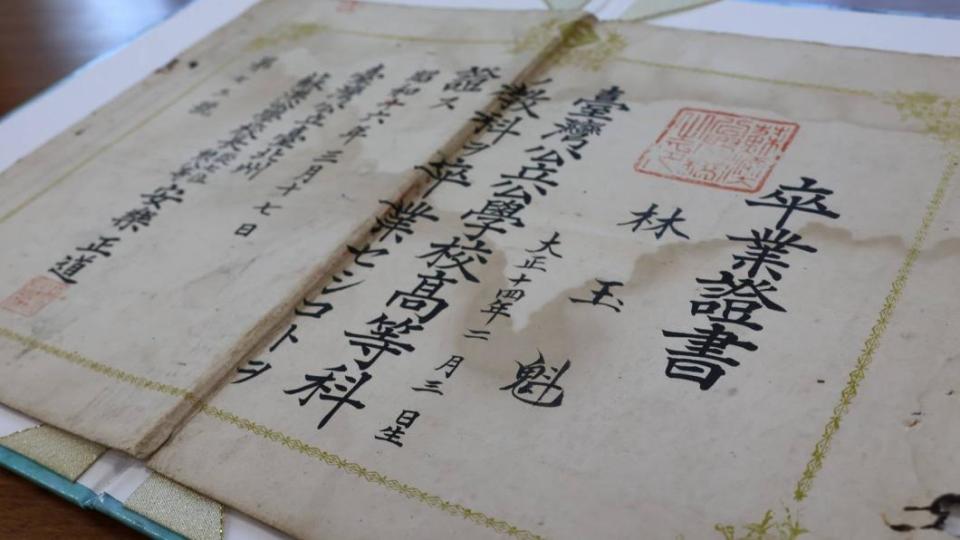 卒業證書
林玉魁
大正十四年二月三日生
臺灣公立公學校高等科
ノ教科ヲ卒業セシコトヲ
證ス
昭和十六年三月十七日
臺灣公立臺北州
安樂正道